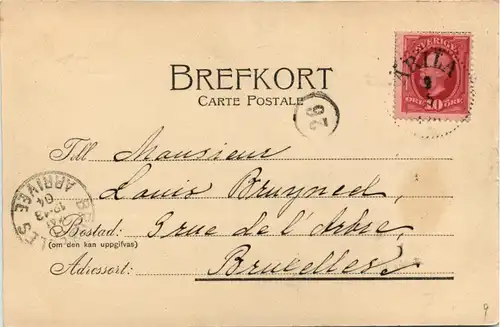 BREFKORT
CARTE POSTALE
SVERIGE
ARILA
9
ÖRE 10 ÖRE
26
Till Monsieur
Louis Bruyneel,
Bostad: 3 rue de l'Arbre,
(om den kan uppgifvas)
Adressort: Bruxelles
ARRIVÉE
04
9